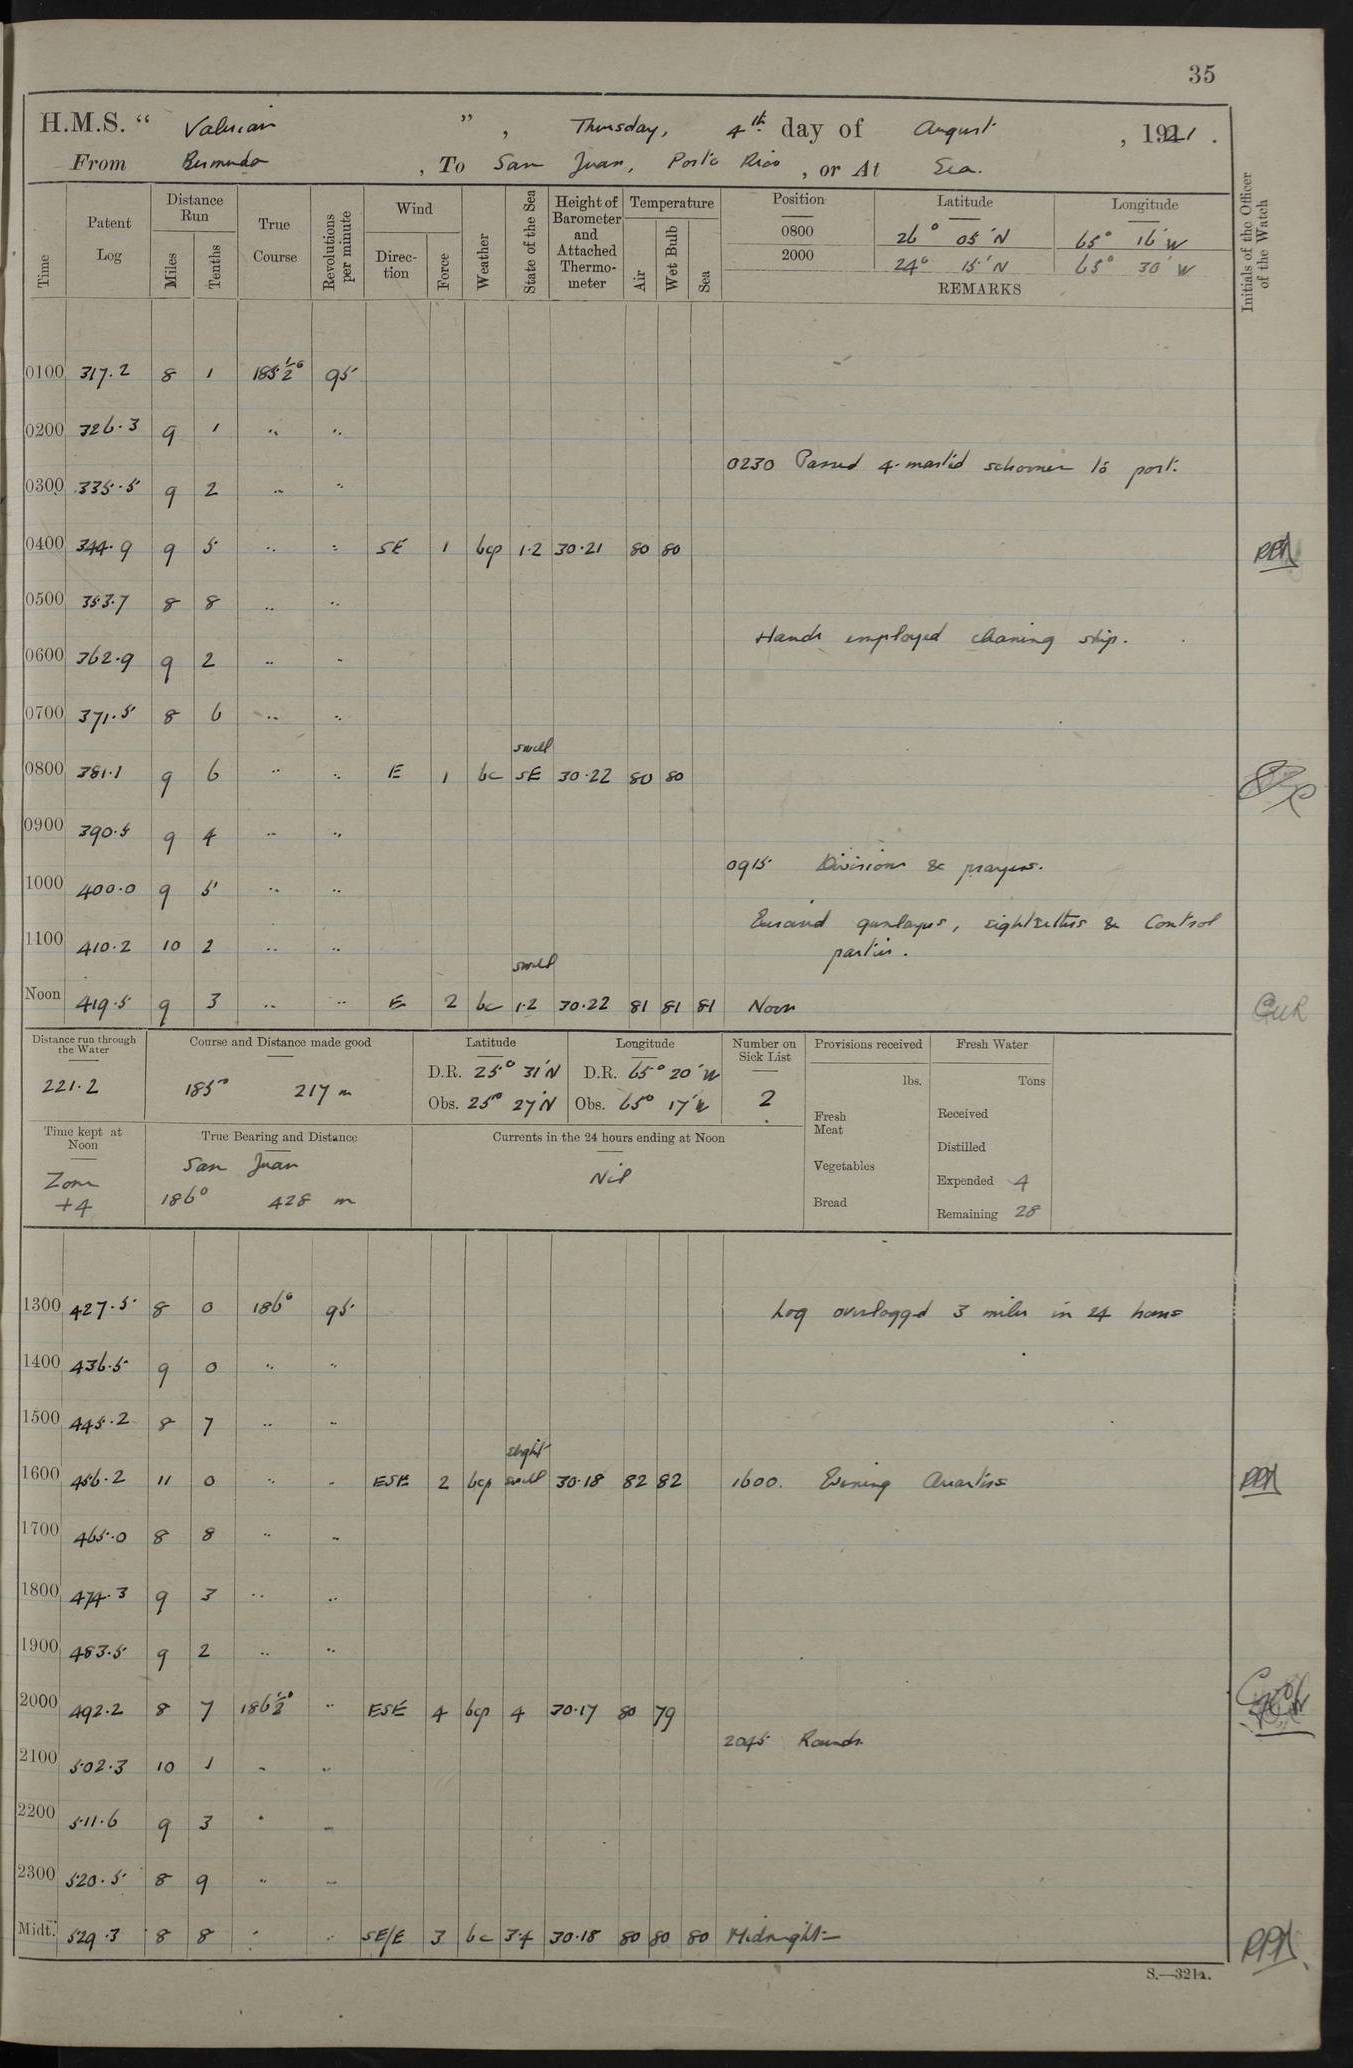 35
H.M.S. " Valerian " , Thursday, 4th day of August , 1921 .
From Bermuda , To San Juan, Porto Rico , or At Sea.
Time Patent Log Distance Run Miles Tenths True Course Revolutions per minute Wind Direction Force Weather State of the Sea Height of Barometer and Attached Thermometer Temperature Air Wet Bulb Sea Position Latitude Longitude Initials of the Officer of the Watch
0800 26° 05' N 65° 16' W
2000 24° 15' N 65° 30' W
REMARKS
0100 317.2 8 1 185½° 95
0200 326.3 9 1 " "
0230 Passed 4-masted schooner to port.
0300 335.5 9 2 " "
0400 344.9 9 5 " " SE 1 bcp 1.2 30.21 80 80
0500 353.7 8 8 " "
Hands employed cleaning ship.
0600 362.9 9 2 " "
0700 371.5 8 6 " "
swell
0800 381.1 9 6 " " E 1 bc SE 30.22 80 80
0900 390.5 9 4 " "
0915 Divisions & prayers.
1000 400.0 9 5 " "
Exercised gunlayers, sightsetters & Control
1100 410.2 10 2 " " parties.
swell
Noon 419.5 9 3 " " E 2 bc 1.2 30.22 81 81 81 Noon
Distance run through the Water Course and Distance made good Latitude Longitude Number on Sick List Provisions received Fresh Water
221.2 185° 217 m D.R. 25° 31' N D.R. 65° 20' W 2 lbs. Tons
Obs. 25° 27' N Obs. 65° 17' W Fresh Meat Received
Time kept at Noon True Bearing and Distance Currents in the 24 hours ending at Noon Distilled
Zone +4 San Juan 186° 428 m Nil Vegetables Expended 4
Bread Remaining 28
1300 427.5 8 0 186° 95 Log overlogged 3 miles in 24 hours
1400 436.5 9 0 " "
1500 445.2 8 7 " "
slight
1600 456.2 11 0 " " ESE 2 bcp swell 30.18 82 82 1600. Evening Quarters
1700 465.0 8 8 " "
1800 474.3 9 3 " "
1900 483.5 9 2 " "
2000 492.2 8 7 186½° " ESE 4 bcp 4 30.17 80 79
2045 Rounds.
2100 502.3 10 1 " "
2200 511.6 9 3 " "
2300 520.5 8 9 " "
Midt. 529.3 8 8 " " SE/E 3 bc 3.4 30.18 80 80 80 Midnight
S.—321a.